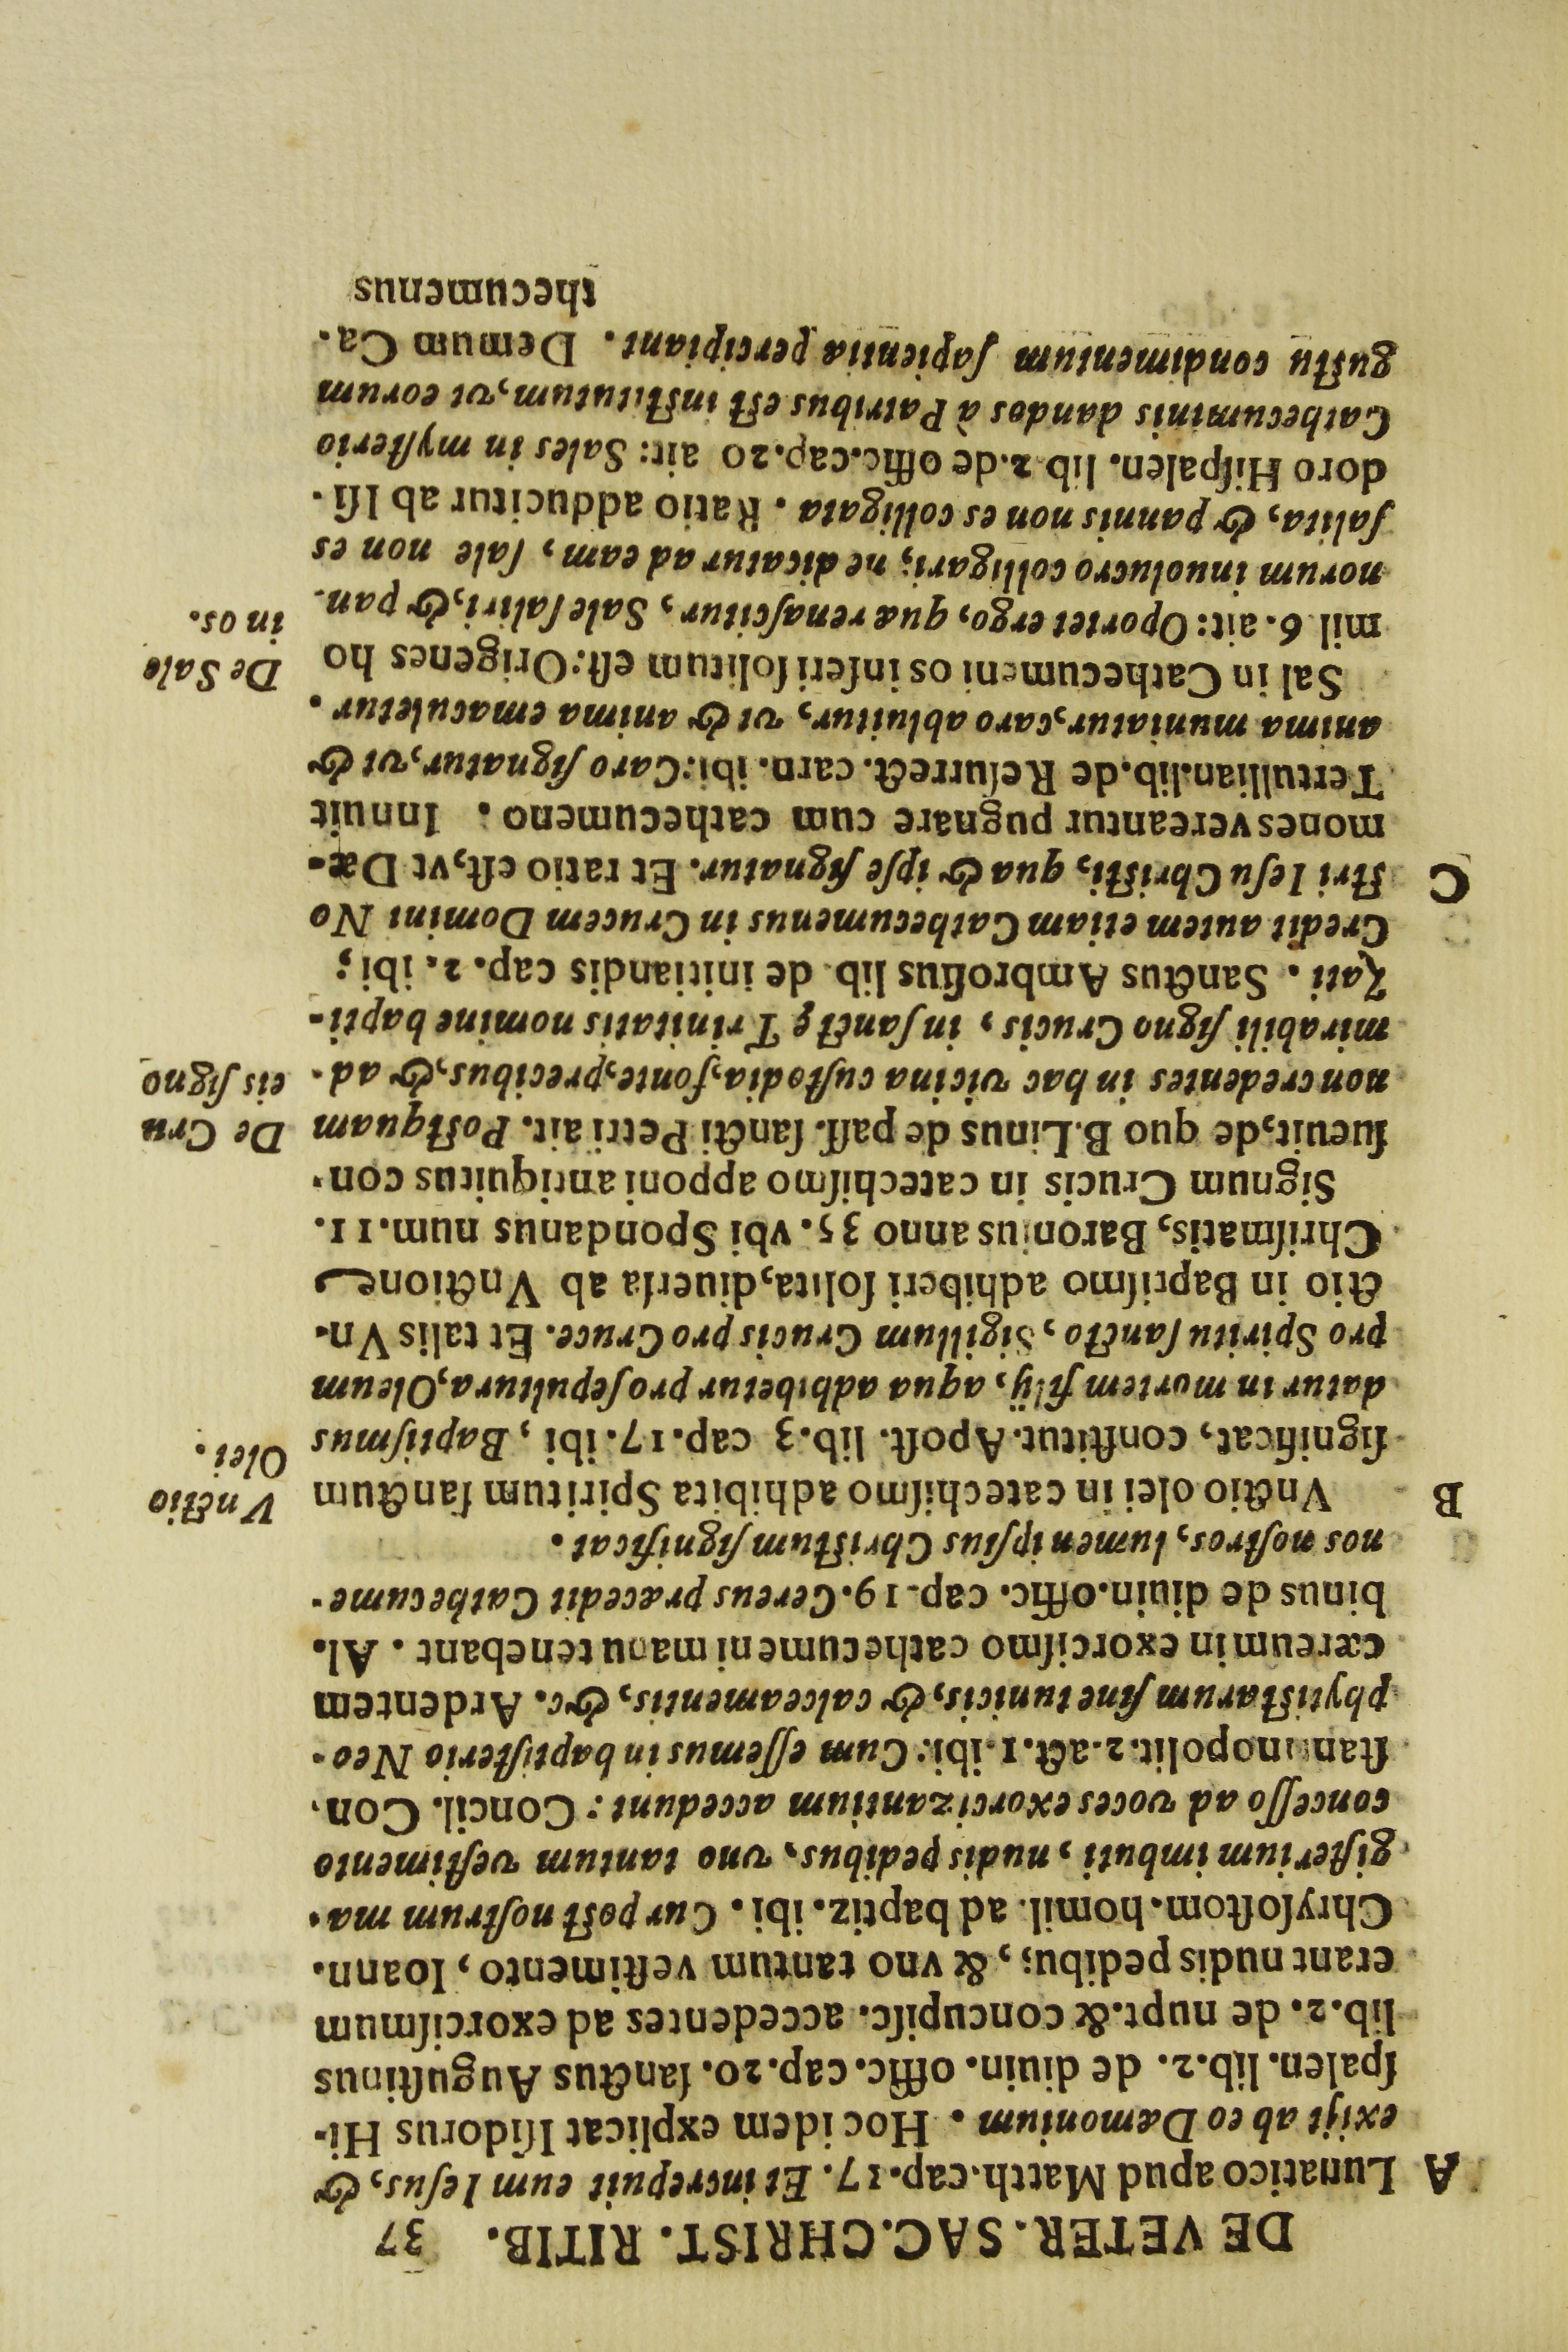 DE VETER. SAC. CHRIST. RITIB. 37
A Lunatico apud Matth. cap. 17. Et increpuit eum Iesus, &
exijt ab eo Dæmonium. Hoc idem explicat Isidorus Hi-
spalen. lib. 2. de diuin. offic. cap. 20. sanctus Augustinus
lib. 2. de nupt. & concupisc. accedentes ad exorcismum
erant nudis pedibus, & vno tantum vestimento, Ioann.
Chrysostom. homil. ad baptiz. ibi. Cur post nostrum ma-
gisterium imbuti, nudis pedibus, vno tantum vestimento
concesso ad voces exorcizantium accedunt: Concil. Con.
stantinopolit. 2. act. 1. ibi: Cum essemus in baptisterio Neo-
phytistarum sine tunicis, & calceamentis, &c. Ardentem
cæreum in exorcismo cathecumeni manu tenebant. Al.
binus de diuin. offic. cap. 19. Cereus præcedit Cathecume-
nos nostros, lumen ipsius Christum significat.
B Vnctio olei in catechismo adhibita Spiritum sanctum
Vnctio
Olei.
significat, constitut. Apost. lib. 3 cap. 17. ibi, Baptismus
datur in mortem filij, aqua adhibetur pro sepultura, Oleum
pro Spiritu sancto, Sigillum Crucis pro Cruce. Et talis Vn-
ctio in Baptismo adhiberi solita, diuersa ab Vnctione
Chrismatis, Baronius anno 35. vbi Spondanus num. 11.
Signum Crucis in catechismo apponi antiquitus con-
sueuit, de quo B. Linus de pass. sancti Petri ait. Postquam
De Cru
eis signo
non credentes in hac vicina custodia, fonte, precibus, & ad-
mirabili signo Crucis, in sanctę Trinitatis nomine bapti-
zati. Sanctus Ambrosius lib. de initiandis cap. 2. ibi;
Credit autem etiam Cathecumenus in Crucem Domini No
C stri Iesu Christi, qua & ipse signatur. Et ratio est, vt Dæ-
mones vereantur pugnare cum cathecumeno. Innuit
Tertullian. lib. de Resurrect. carn. ibi: Caro signatur, vt &
anima muniatur, caro abluitur, vt & anima emaculetur.
Sal in Cathecumeni os inseri solitum est: Origenes ho
De Sale
in os.
mil 6. ait: Oportet ergo, quæ renascitur, Sale saliri, & pan-
norum inuolucro colligari; ne dicatur ad eam, sale non es
salita, & pannis non es colligata. Ratio adducitur ab Isi-
doro Hispalen. lib 2. de offic. cap. 20 ait: Sales in mysterio
Cathecuminis dandos à Patribus est institutum, vt eorum
gustu condimentum sapientia percipiant. Demum Ca-
thecumenus